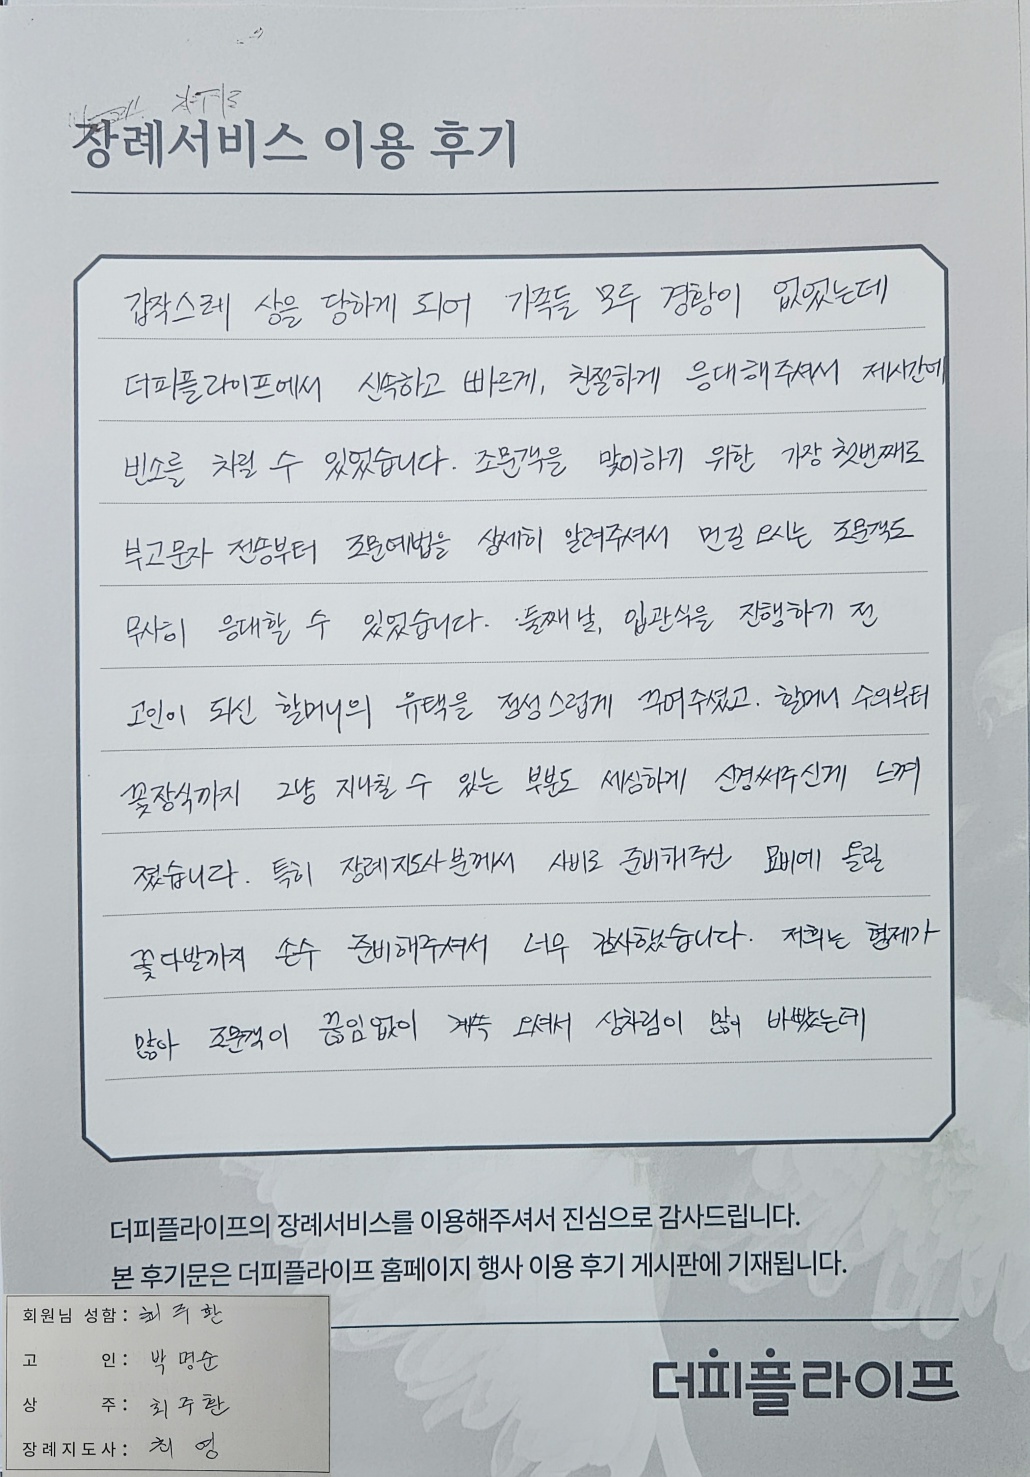 장례서비스 이용 후기
갑작스레 상을 당하게 되어 가족들 모두 경황이 없었는데
더피플라이프에서 신속하고 빠르게, 친절하게 응대해주셔서 제시간에
빈소를 차릴 수 있었습니다. 조문객을 맞이하기 위한 가장 첫번째로
부고문자 전송부터 조문예법을 상세히 알려주셔서 먼길 오시는 조문객도
무사히 응대할 수 있었습니다. 둘째날, 입관식을 진행하기 전
고인이 되신 할머니의 유택을 정성스럽게 꾸며주셨고. 할머니 수의부터
꽃장식까지 그냥 지나칠 수 있는 부분도 세심하게 신경써주신게 느껴
졌습니다. 특히 장례지도사분께서 사비로 준비해주신 묘비에 올릴
꽃다발까지 손수 준비해주셔서 너무 감사했습니다. 저희는 형제가
많아 조문객이 끊임없이 계속 오셔서 상차림이 많이 바빴는데
더피플라이프의 장례서비스를 이용해주셔서 진심으로 감사드립니다.
본 후기문은 더피플라이프 홈페이지 행사 이용 후기 게시판에 기재됩니다.
회원님 성함: 최주환
고 인: 박명순
상 주: 최주환
장례지도사: 최영
더피플라이프